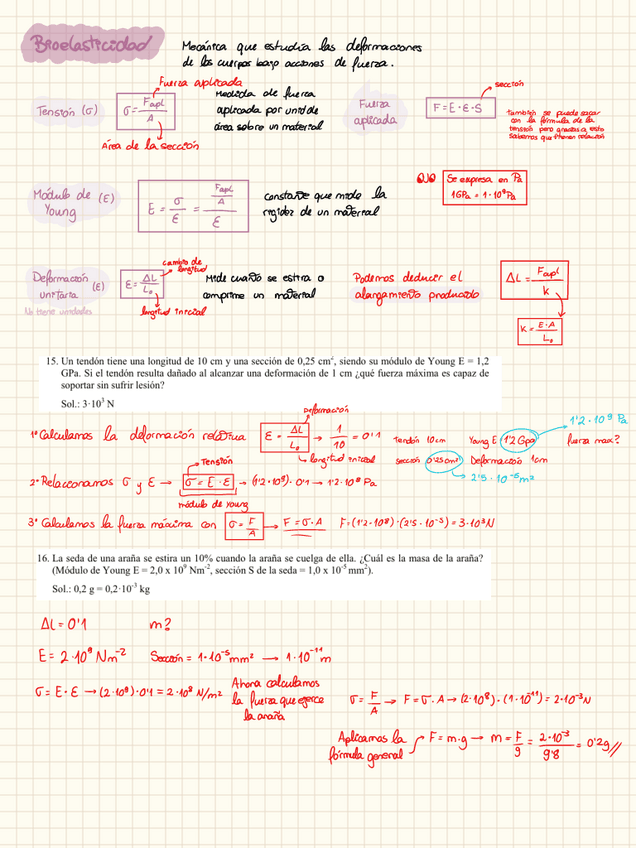 Bioelasticidad
Mecánica que estudia las deformaciones
de los cuerpos bajo acciones de fuerza.
Fuerza aplicada
Tensión (σ)
σ = Fapl / A
Área de la sección
Medida de fuerza
aplicada por unidad de
área sobre un material
Fuerza
aplicada
sección
F = E · ε · S
también se puede sacar
con la fórmula de la
tensión pero gracias a esto
sabemos que tienen relación
Módulo de (E)
Young
E = σ / ε = (Fapl / A) / ε
constante que mide la
rigidez de un material
OJO
Se expresa en Pa
1GPa = 1·10⁹Pa
Deformación
unitaria (ε)
No tiene unidades
cambio de
longitud
ε = ΔL / L₀
longitud inicial
Mide cuanto se estira o
comprime un material
Podemos deducir el
alargamiento producido
ΔL = Fapl / K
K = E·A / L₀
15. Un tendón tiene una longitud de 10 cm y una sección de 0,25 cm², siendo su módulo de Young E = 1,2
GPa. Si el tendón resulta dañado al alcanzar una deformación de 1 cm ¿qué fuerza máxima es capaz de
soportar sin sufrir lesión?
Sol.: 3·10³ N
Deformación
1º Calculamos la deformación relativa
ε = ΔL / L₀ → 1/10 = 0'1
longitud inicial
tendón 10cm Young E 1'2 Gpa fuerza max?
1'2·10⁹ Pa
sección 0'25cm² Deformación 1cm
2'5·10⁻⁵m²
Tensión
2º Relacionamos σ y ε → σ = E · ε → (1'2·10⁹)·0'1 → 1'2·10⁸ Pa
módulo de Young
3º Calculamos la fuerza máxima con σ = F/A → F = σ·A F = (1'2·10⁸)·(2'5·10⁻⁵) = 3·10³N
16. La seda de una araña se estira un 10% cuando la araña se cuelga de ella. ¿Cuál es la masa de la araña?
(Módulo de Young E = 2,0 x 10⁹ Nm⁻², sección S de la seda = 1,0 x 10⁻⁵ mm²).
Sol.: 0,2 g = 0,2·10⁻³ kg
ΔL = 0'1 m?
E = 2·10⁹ Nm⁻² Sección = 1·10⁻⁵ mm² → 1·10⁻¹¹ m
σ = E·ε → (2·10⁹)·0'1 = 2·10⁸ N/m²
Ahora calculamos
la fuerza que ejerce
la araña
σ = F/A → F = σ·A → (2·10⁸)·(1·10⁻¹¹) = 2·10⁻³N
Aplicamos la
fórmula general
F = m·g → m = F/g = 2·10⁻³ / 9'8 = 0'2g//